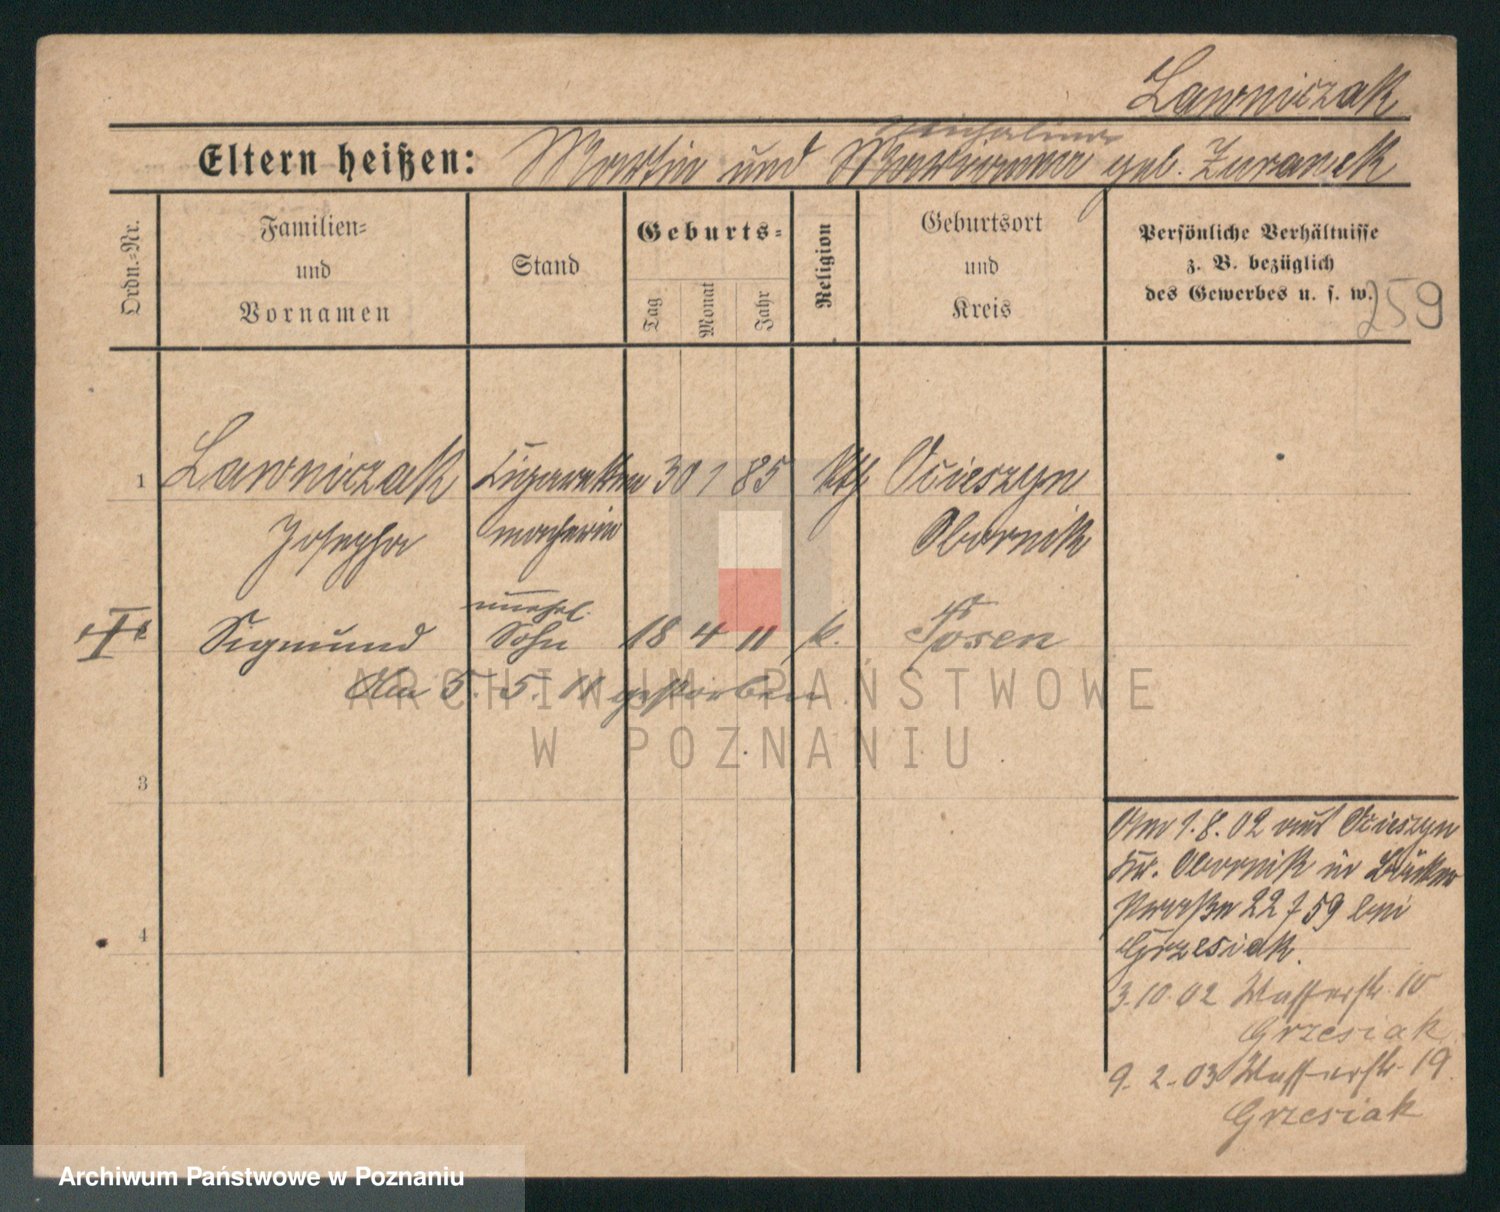 Lawniczak
Michalina
Eltern heißen: Martin und Marianna geb. Zuranek
Ordn.-Nr.
Familien- und Vornamen
Stand
Geburts-
Tag
Monat
Jahr
Religion
Geburtsort und Kreis
Persönliche Verhältnisse
z. B. bezüglich
des Gewerbes u. s. w.
259
1 Lawniczak Cigaretten 30 1 85 kth Ocieszyn
Josepha macherin Obornik
unehel.
Sigmund Sohn 18 4 11 k. Posen
Am 5. 5. 11 gestorben
ARCHIWUM PAŃSTWOWE
W POZNANIU
3
4
Am 1.8.02 aus Ocieszyn
Kr. Obornik in
22 759 bei
Grzesiak.
3.10.02 Wasserstr. 10
Grzesiak
9.2.03 Wasserstr. 19
Grzesiak
Archiwum Państwowe w Poznaniu